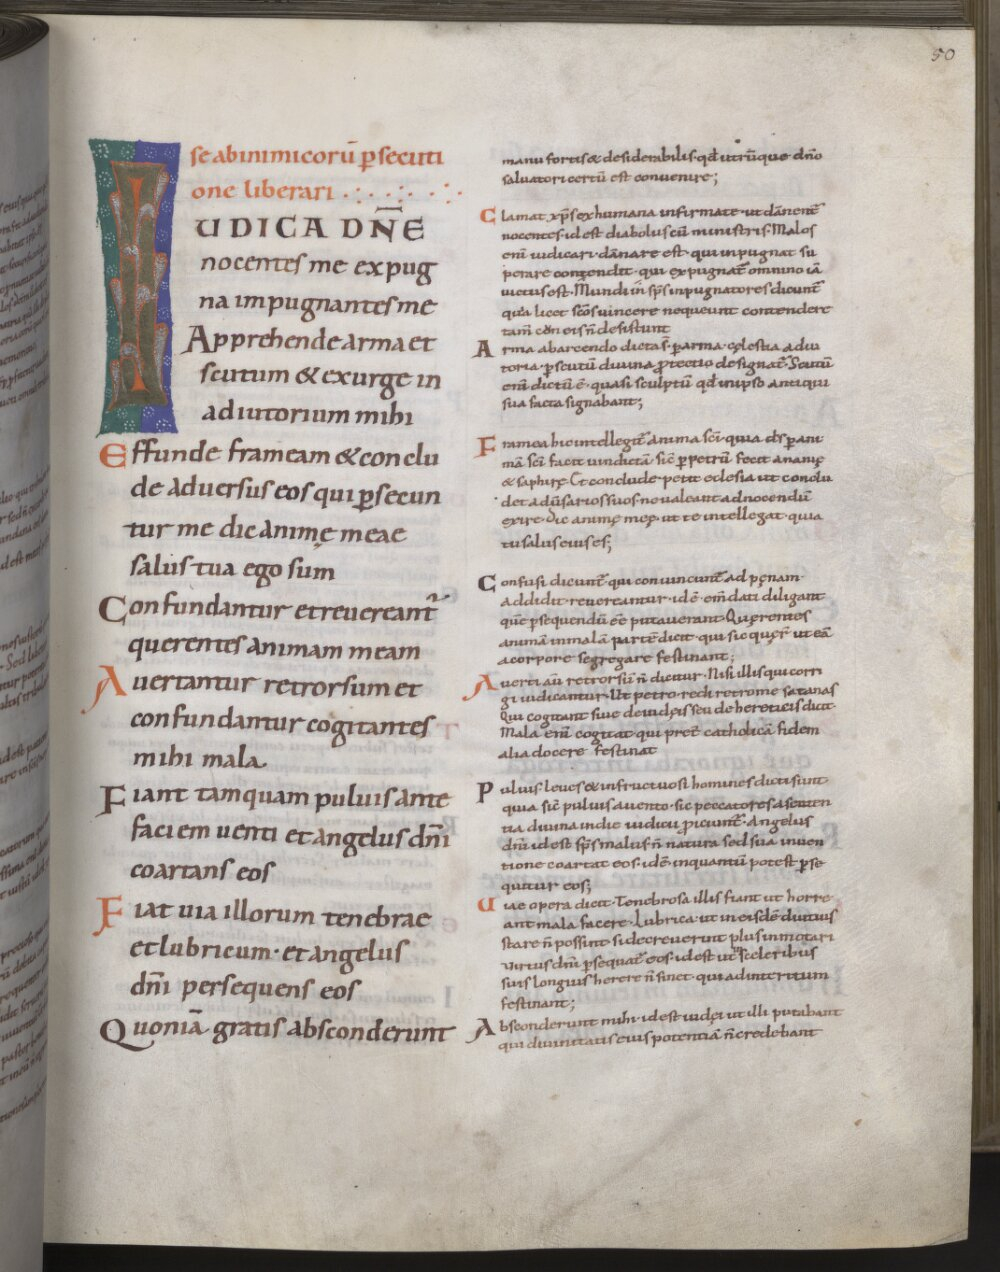 50
se ab inimicorū p̱secuti
one liberari
IUDICA DN̄E
nocentes me expug
na impugnantes me
Apprehende arma et
scutum & exurge in
adiutorium mihi
Effunde frameam & conclu
de adversus eos qui p̱secun
tur me dic animę meae
salus tua ego sum
Confundantur et revereant̄
querentes animam meam
Avertantur retrorsum et
confundantur cogitantes
mihi mala.
Fiant tamquam puluis ante
faciem uenti et angelus dn̄i
coartans eos
Fiat uia illorum tenebrae
et lubricum· et angelus
dn̄i persequens eos
Quoniā gratis absconderunt
manu fortis & desiderabilis· qd̄ utrūque dn̄o
saluatori certū est conuenire;
Clamat xp̄s ex humana infirmate· ut dānent̄
nocentes· id est diabolus cū ministris· Malos
eni̅ iudicari· dānare est· qui inpugnat su
perare contendit· qui expugnat̄ omnino iā
uictus est· Mundi in̄ sp̄s inpugnatores dicunt̄
quia licet sc̄os uincere nequeunt contendere
tam̄ con eis n̄ desistunt
Arma ab arcendo dicta s̄· p̱ arma cęlestia adiu
toria· p̱ scutū diuina protectio designat̄· Scutū
eni̅ dictū ē· quasi sculptū qd̄ in ipso antiqui
sua facta signabant;
Framea hic intellegit̄ anima sc̄i· quia d̄s p̱ ani
mā sc̄i facit uindictā· sic̄ p̱ petrū fecit ananię
& saphirę· Et conclude· petit eclesia ut conclu
det aduersarios suos ne ualeant ad nocendū
exire· dic animę meę· ut te intellegat quia
tu salus eius es;
Confusi dicunt̄ qui conuincunt̄ ad pęnam·
addidit reuereantur· id ē· em̄dati diligant
quē persequendū ēē putauerant· Quęrentes
animā in malā partē dicit· qui sic quęr̄ ut eā
a corpore segregare festinant;
Auerti au̅ retrorsū n̄ dicitur· Nisi illis qui corri
gi iudicantur· Ut petro· redi retro me satanas
Qui cogitant siue de iudęis seu de hereticis dicit
Mala eni̅ cogitat qui pret̄ catholicā fidem
alia docere festinat
Puluis leues & infructuosi homines dicti sunt
quia sic̄ puluis a uento· sic peccatores a senten
tia diuina in die iudicii p̱icunt̄· Angelus
dn̄i id est sp̄s malus· n̄ natura sed sua inuen
tione coartat eos· id ē inquantū potest p̱se
quitur eos;
Uiae opera dicit· Tenebrosa illis fiant ut horre
ant mala facere· Lubrica· ut in eisdē diutius
stare n̄ possint· si decreuerint plus inmorari
uirtus dn̄i p̱sequat̄ eos· id est ut sceleribus
suis longius herere n̄ sinet· qui ad interitum
festinant;
Absconderunt mihi· id est iudęi ut illi putabant
qui diuinitatis eius potentiā n̄ credebant